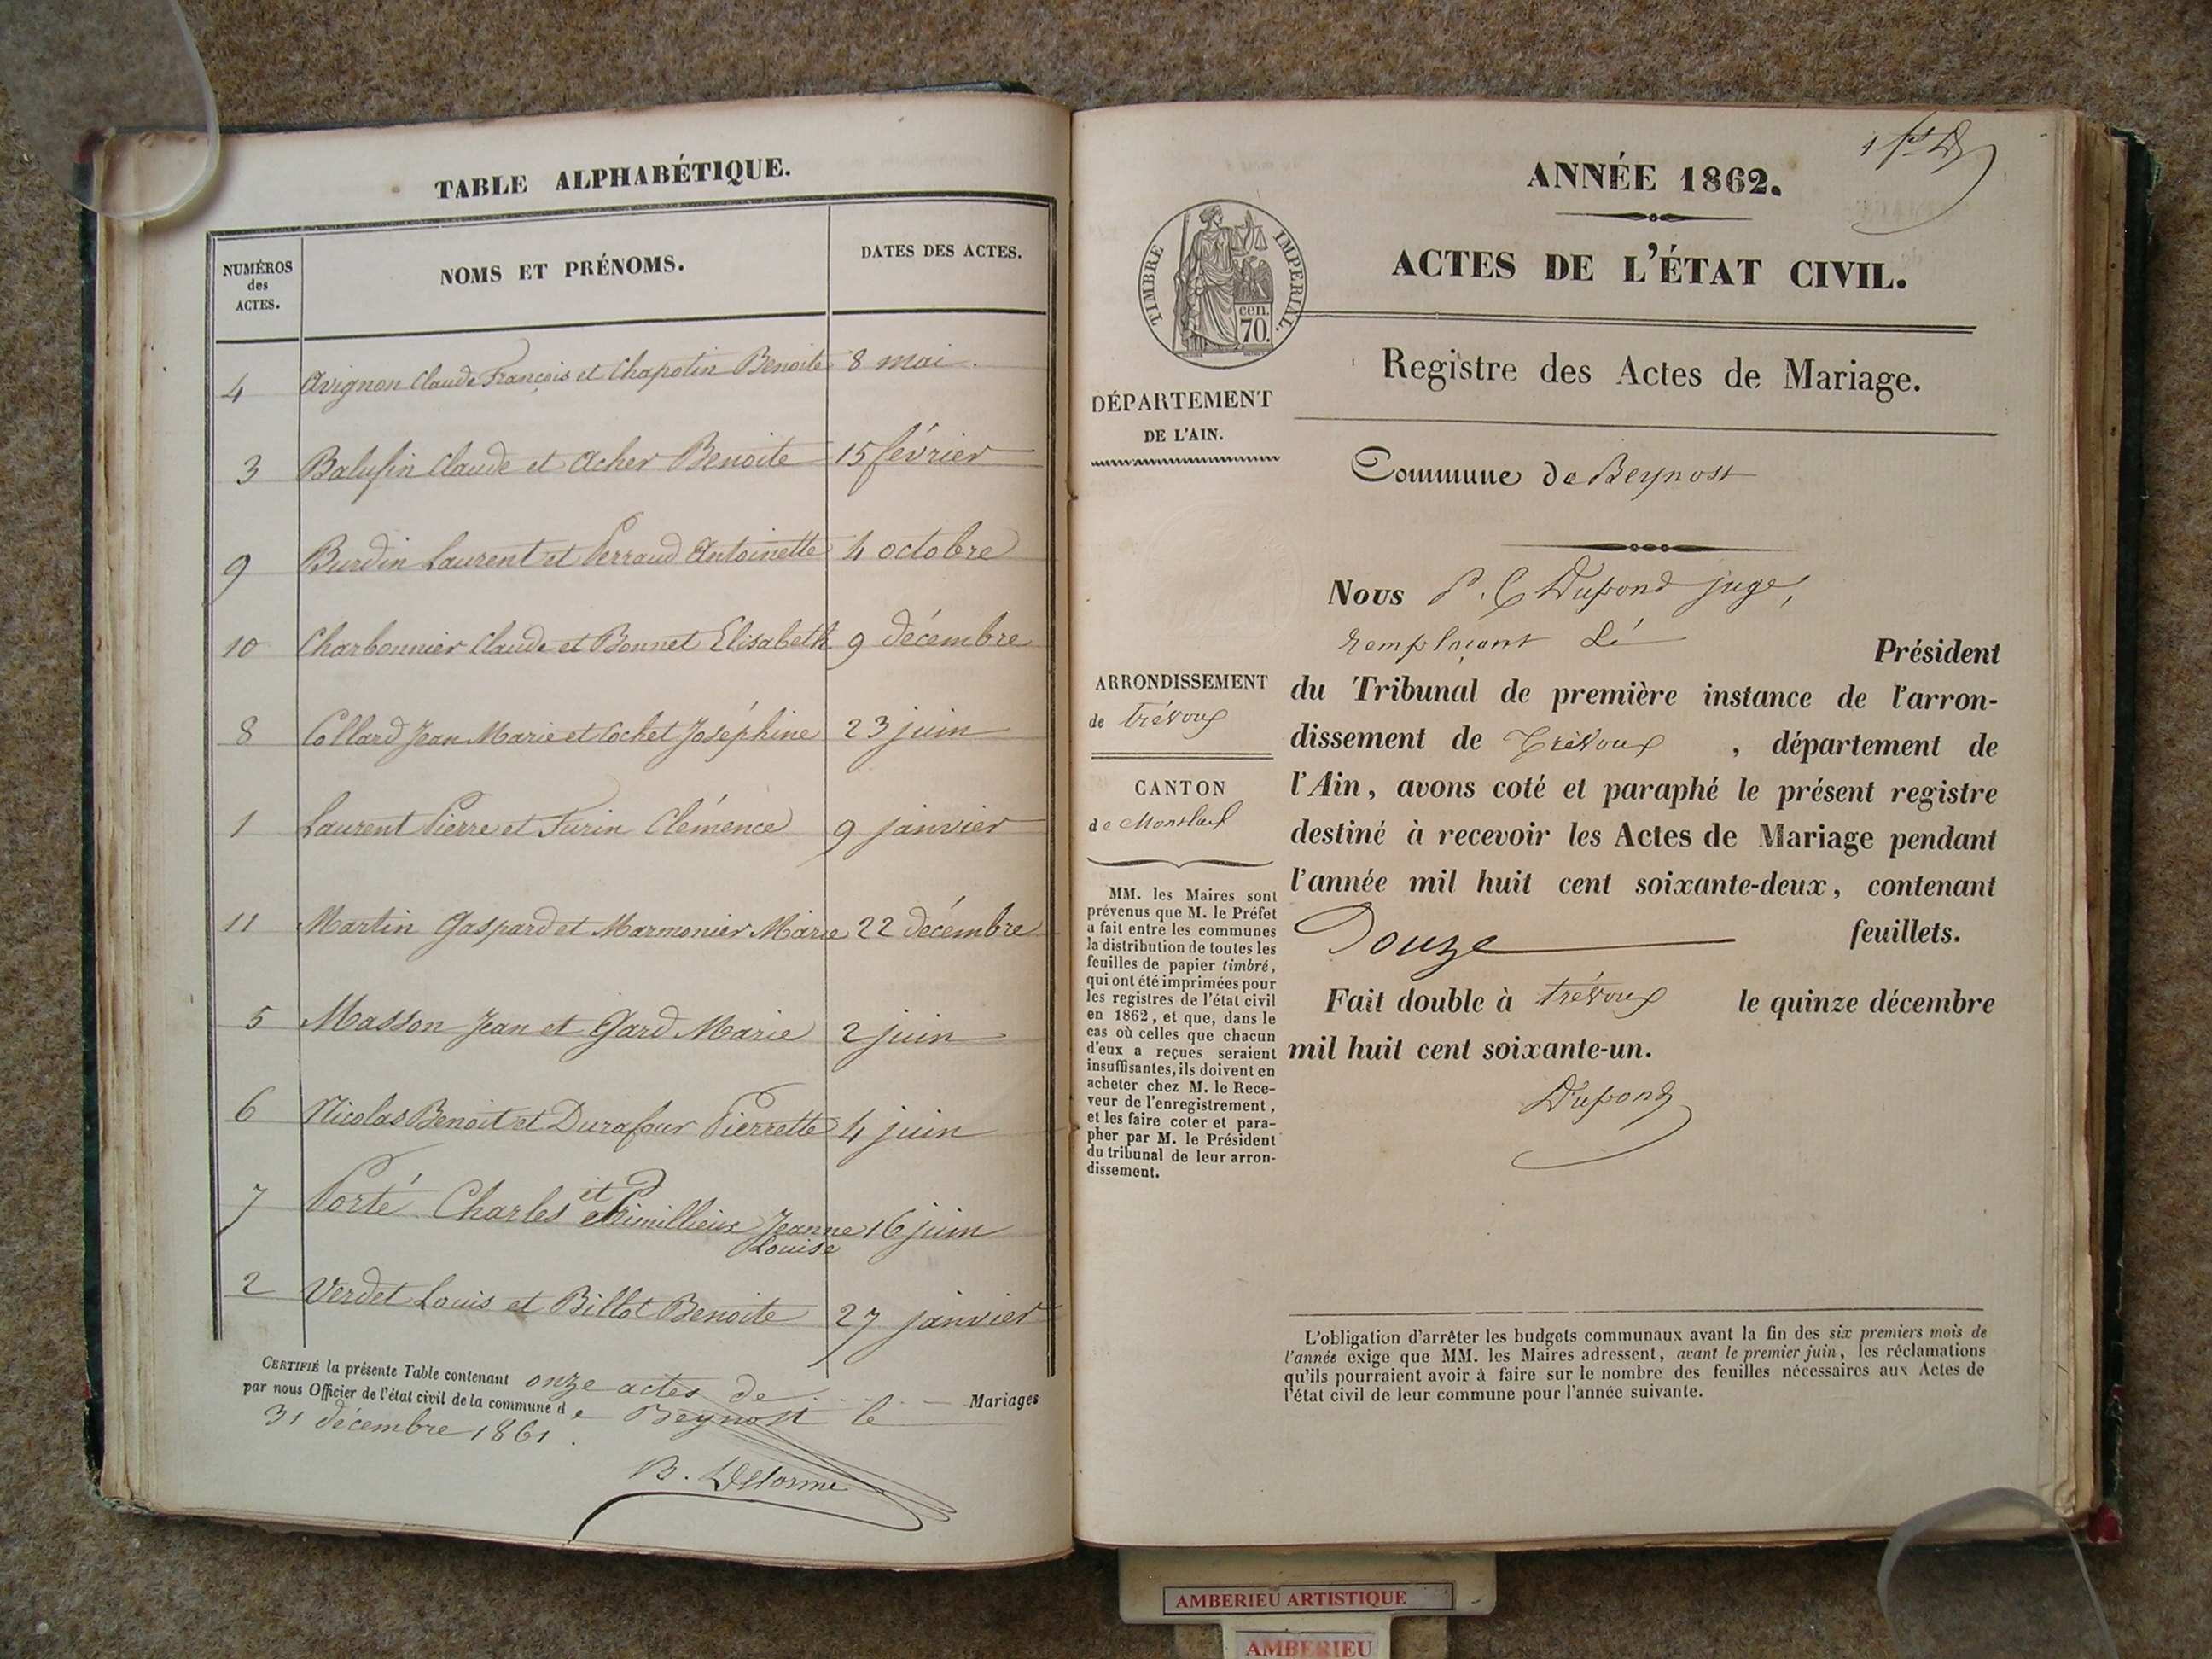 TABLE ALPHABÉTIQUE.
NUMÉROS des ACTES.
NOMS ET PRÉNOMS.
DATES DES ACTES.
4 Avignon Claude François et Chapotin Benoite 8 mai.
3 Balufin Claude et Acher Benoite 15 février
9 Burdin Laurent et Perraud Antoinette 4 octobre
10 Charbonnier Claude et Bonnet Elisabeth 9 décembre
8 Collard Jean Marie et Cochet Joséphine 23 juin
1 Laurent Pierre et Furin Clémence 9 janvier
11 Martin Gaspard et Marmonier Marie 22 décembre
5 Masson Jean et Gard Marie 2 juin
6 Nicolas Benoit et Durafour Pierrette 4 juin
7 Porté Charles et Jeanne Louise 16 juin
2 Verdet Louis et Billot Benoite 27 janvier
CERTIFIÉ la présente Table contenant onze actes de Mariages
par nous Officier de l'état civil de la commune de Beynost le
31 décembre 1861.
B. Delorme
ANNÉE 1862.
ACTES DE L'ÉTAT CIVIL.
TIMBRE IMPERIAL.
cen. 70.
Registre des Actes de Mariage.
DÉPARTEMENT
DE L'AIN.
Commune de Beynost
Nous P. C Dupond juge,
remplaçant lé
Président
du Tribunal de première instance de l'arron-
dissement de Trévoux , département de
l'Ain, avons coté et paraphé le présent registre
destiné à recevoir les Actes de Mariage pendant
l'année mil huit cent soixante-deux, contenant
Douze feuillets.
Fait double à Trévoux le quinze décembre
mil huit cent soixante-un.
Dupond
ARRONDISSEMENT
de Trévoux
CANTON
de Montluel
MM. les Maires sont
prévenus que M. le Préfet
a fait entre les communes
la distribution de toutes les
feuilles de papier timbré,
qui ont été imprimées pour
les registres de l'état civil
en 1862, et que, dans le
cas où celles que chacun
d'eux a reçues seraient
insuffisantes, ils doivent en
acheter chez M. le Rece-
veur de l'enregistrement,
et les faire coter et para-
pher par M. le Président
du tribunal de leur arron-
dissement.
L'obligation d'arrêter les budgets communaux avant la fin des six premiers mois de
l'année exige que MM. les Maires adressent, avant le premier juin, les réclamations
qu'ils pourraient avoir à faire sur le nombre des feuilles nécessaires aux Actes de
l'état civil de leur commune pour l'année suivante.
AMBERIEU ARTISTIQUE
AMBERIEU